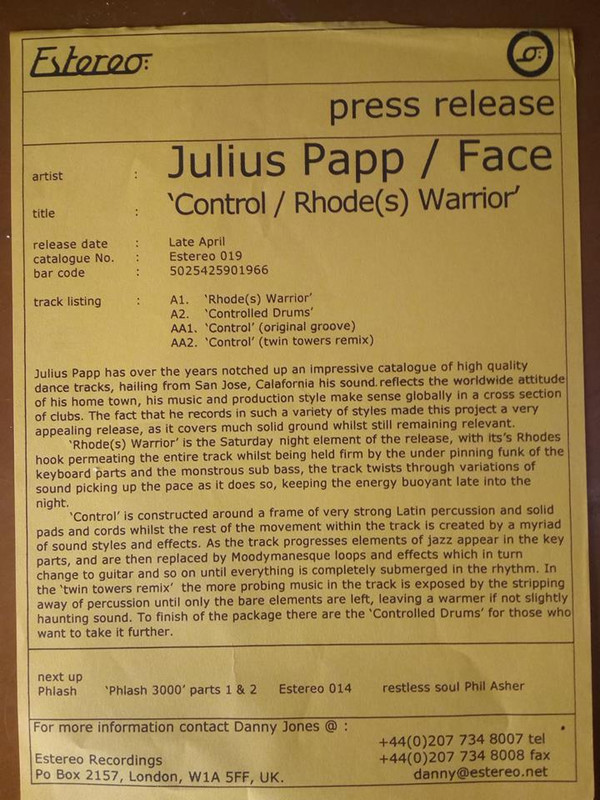 Estereo:
press release
artist : Julius Papp / Face
title : ‘Control / Rhode(s) Warrior’
release date : Late April
catalogue No. : Estereo 019
bar code : 5025425901966
track listing : A1. ‘Rhode(s) Warrior’
A2. ‘Controlled Drums’
AA1. ‘Control’ (original groove)
AA2. ‘Control’ (twin towers remix)
Julius Papp has over the years notched up an impressive catalogue of high quality
dance tracks, hailing from San Jose, Calafornia his sound reflects the worldwide attitude
of his home town, his music and production style make sense globally in a cross section
of clubs. The fact that he records in such a variety of styles made this project a very
appealing release, as it covers much solid ground whilst still remaining relevant.
‘Rhode(s) Warrior’ is the Saturday night element of the release, with its’s Rhodes
hook permeating the entire track whilst being held firm by the under pinning funk of the
keyboard parts and the monstrous sub bass, the track twists through variations of
sound picking up the pace as it does so, keeping the energy buoyant late into the
night.
‘Control’ is constructed around a frame of very strong Latin percussion and solid
pads and cords whilst the rest of the movement within the track is created by a myriad
of sound styles and effects. As the track progresses elements of jazz appear in the key
parts, and are then replaced by Moodymanesque loops and effects which in turn
change to guitar and so on until everything is completely submerged in the rhythm. In
the ‘twin towers remix’ the more probing music in the track is exposed by the stripping
away of percussion until only the bare elements are left, leaving a warmer if not slightly
haunting sound. To finish of the package there are the ‘Controlled Drums’ for those who
want to take it further.
next up
Phlash ‘Phlash 3000’ parts 1 & 2 Estereo 014 restless soul Phil Asher
For more information contact Danny Jones @ :
+44(0)207 734 8007 tel
Estereo Recordings +44(0)207 734 8008 fax
Po Box 2157, London, W1A 5FF, UK. danny@estereo.net